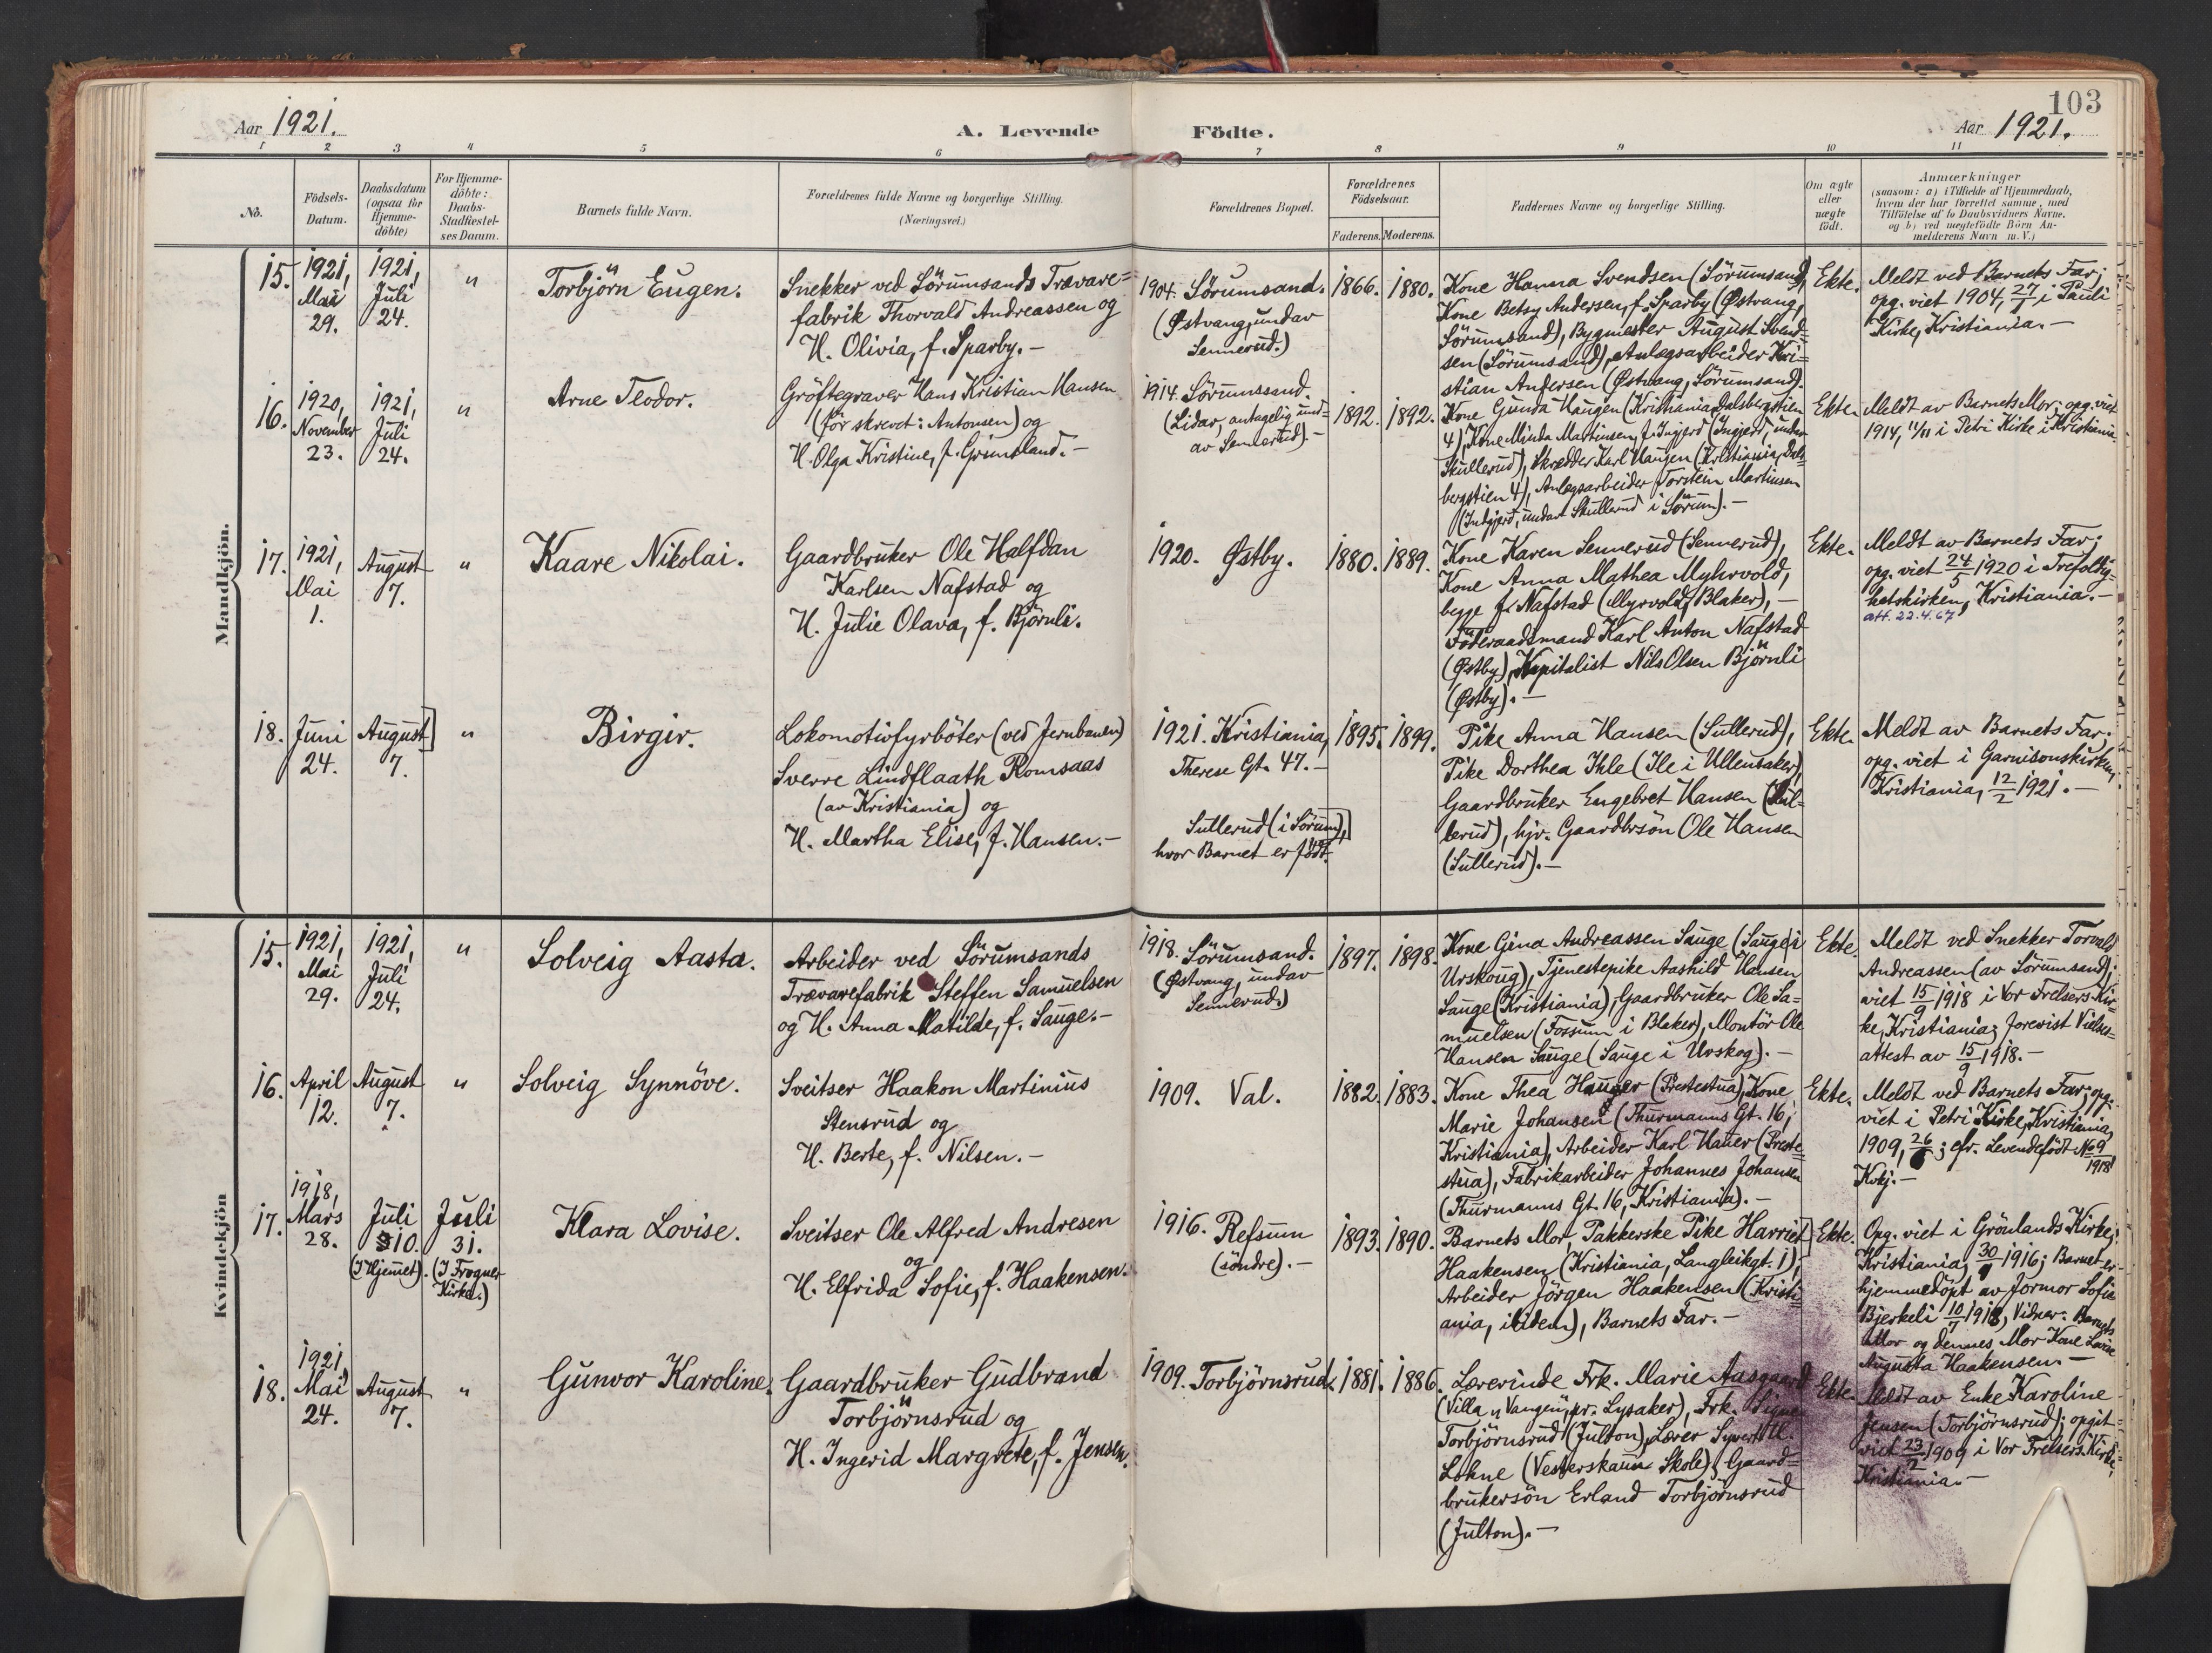 103
Aar 1921.
A. Levende Födte.
Aar 1921.
1 2 3 4 5 6 7 8 9 10 11
No.
Födsels-
Datum.
Daabsdatum
(ogsaa for
Hjemme-
döbte)
For Hjemme-
döbte:
Daabs-
Stadfæstel-
ses Datum.
Barnets fulde Navn.
Forældrenes fulde Navne og borgerlige Stilling.
(Næringsvei.)
Forældrenes Bopæl.
Forældrenes
Födselsaar.
Faderens. Moderens.
Faddernes Navne og borgerlige Stilling.
Om ægte
eller
uægte
födt.
Anmærkninger
(saasom: a) i Tilfælde af Hjemmedaab,
hvem der har forrettet samme, med
Tilföielse af to Daabsvidners Navne,
og b) ved uægtefödte Börn An-
melderens Navn m. V.)
Mandkjön.
15.
1921,
Mai
29.
1921,
Juli
24.
"
Torbjörn Eugen.
Snekker ved Sörumsands Trævare=
fabrik Thorvald Andreassen og
H. Olivia, f. Sparby. -
1904. Sörumsand.
(Østvang, undav
Sennerud.)
1866.
1880.
Kone Hanna Svendsen (Sörumsand),
Kone Betsy Andersen, f. Sparby (Østvang,
Sörumsand), Bygmester August Svend=
sen (Sörumsand), Anlægsarbeider Kri=
stian Andersen (Østvang, Sörumsand).
Ekte.
Meldt ved Barnets Far;
opg. viet 1904, 27/7 i Pauli
Kirke, Kristiania. -
16.
1920,
November
23.
1921,
Juli
24.
"
Arne Teodor.
Gröftegraver Hans Kristian Hansen
(för skrevet: Antonsen) og
H. Olga Kristine, f. Grimsland. -
1914. Sörumssand.
(Lidar, antagelig und=
av Sennerud). -
1892.
1892.
Kone Gunda Haugen (Kristiania, Dalsbergstien
4), Kone Minda Martinsen, f. Ingjerd (Ingjerd, undav
Skullerud), Skrædder Karl Haugen (Kristiania, Dals=
bergstien 4), Anlægsarbeider Torstein Martinsen
(Indgjerd, undav Skullerud i Sörum). -
Ekte.
Meldt av Barnets Mor; opg. viet
1914, 11/11 i Petri Kirke i Kristiania.
17.
1921,
Mai
1.
August
7.
"
Kaare Nikolai.
Gaardbruker Ole Halfdan
Karlsen Nafstad og
H. Julie Olava, f. Björnli.
1920. Østby.
1880.
1889.
Kone Karen Sennerud (Sennerud),
Kone Anna Mathea Myhrvold,
begge f. Nafstad (Myrvold, Blaker), -
Föderaadsmand Karl Anton Nafstad
(Østby), Kapitalist Nils Olsen Björnli
(Østby). -
Ekte.
Meldt av Barnets Far;
opg. viet 24/5 1920 i Trefoldig=
hetskirken, Kristiania. -
att. 22.4.67
18.
Juni
24.
August]
7.
"
Birgir.
Lokomotivfyrböter (ved Jernbanen)
Sverre Lindflaath Romsaas
(av Kristiania) og
H. Martha Elise, f. Hansen. -
1921. Kristiania,
Therese Gt. 47. -
Sullerud (i Sörum),]
hvor Barnet er födt.
1895.
1899.
Pike Anna Hansen (Sullerud),
Pike Dorthea Ihle (Ile i Ullensaker),
Gaardbruker Engebret Hansen (Sul=
lerud), hjv. Gaardbrsön Ole Hansen
(Sullerud). -
Ekte.
Meldt av Barnets Far;
opg. viet i Garnisonskirken,
Kristiania, 12/2 1921. -
Kvindekjön
15.
1921,
Mai
29.
1921,
Juli
24.
"
Solveig Aasta.
Arbeider ved Sörumsands
Trævarefabrik Steffen Samuelsen
og H. Anna Matilde, f. Sauge. -
1918. Sörumsand.
(Østvang, undav
Sennerud.)
1897.
1898.
Kone Gina Andreassen Sauge (Sauge i
Urskoug), Tjenestepike Aashild Hansen
Sauge (Kristiania), Gaardbruker Ole Sa=
muelsen (Fossum i Blaker), Montör Ole
Hansen Sauge (Sauge i Urskog). -
Ekte.
Meldt ved Snekker Torvald
Andreassen (av Sörumsand);
viet 15/9 1918 i Vor Frelsers Kir=
ke, Kristiania; forevist Vielses=
attest av 15/9 1918. -
16.
April
12.
August
7.
"
Solveig Synnöve.
Sveitser Haakon Martinius
Stensrud og
H. Berte, f. Nilsen. -
1909. Val.
1882.
1883.
Kone Thea Hauger (Prestestua), Kone
Marie Johansen (Thurmanns Gt. 16,
Kristiania), Arbeider Karl Hauer (Preste=
stua), Fabrikarbeider Johannes Johansen
(Thurmanns Gt. 16, Kristiania). -
Ekte.
Meldt ved Barnets Far; opg.
viet i Petri Kirke, Kristiania,
1909, 26/; cfr. Levendefödt No 9
1918
Kvkj. -
17.
1918,
Mars
28.
Juli
10.
(I Hjemmet).
Juli
31.
(I Frogner
Kirke.)
Klara Lovise.
Sveitser Ole Alfred Andresen
og
H. Elfrida Sofie, f. Haakensen.
1916. Refsum
(söndre). -
1893.
1890.
Barnets Mor, Pakkerske Pike Harriet
Haakensen (Kristiania, Langleikgt. 1),
Arbeider Jörgen Haakensen (Kristi=
ania, ibidem), Barnets Far. -
Ekte.
Opg. viet i Grönlands Kirke,
Kristiania, 30/9 1916; Barnet er
hjemmedöpt av Jormor Sofie
Bjerkeli 10/7 1918, Vidner: Barnets
Mor og dennes Mor Kone Lovise
Augusta Haakensen. -
18.
1921,
Mai
24.
August
7.
"
Gunvor Karoline.
Gaardbruker Gudbrand
Torbjörnsrud og
H. Ingerid Margrete, f. Jensen.
1909. Torbjörnsrud.
1881.
1886.
Lærerinde Frk. Marie Aasgaard
(Villa "Vangen", pr. Lysaker), Frk. Signe
Torbjörnsrud (Julton), Lærer Syvert H.
Løkne (Vesterskaun Skole), Gaard=
brukersön Erland Torbjörnsrud
(Julton). -
Ekte.
Meldt av Enke Karoline
Jensen (Torbjörnsrud); opgit
viet 23/2 1909 i Vor Frelsers Kirke,
Kristiania. -